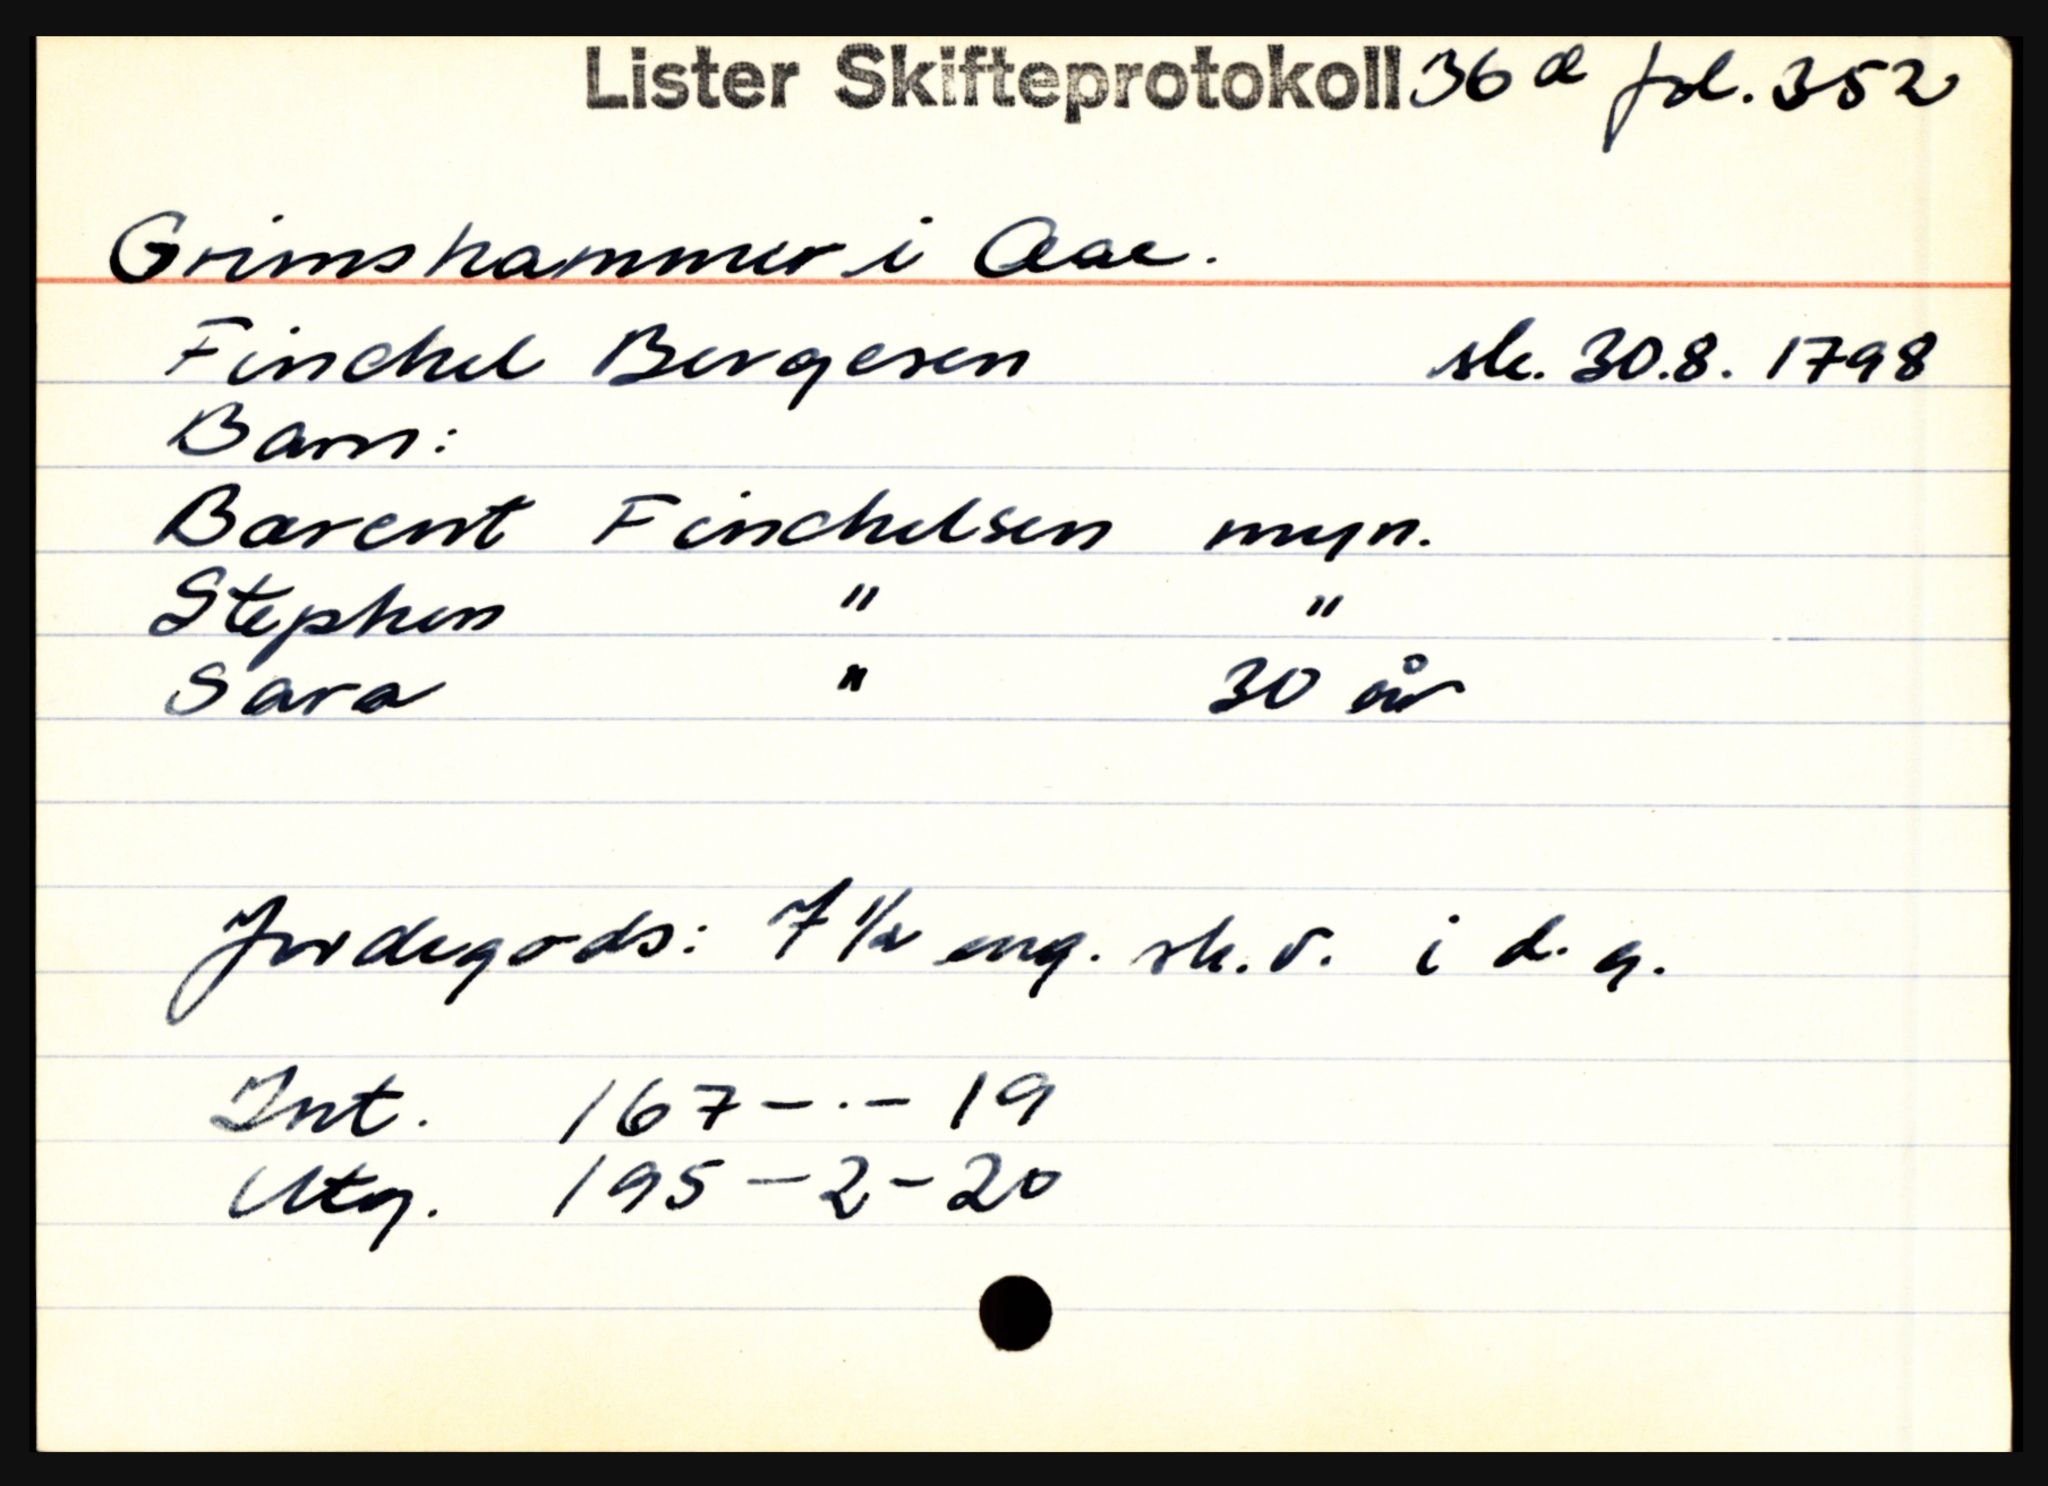 Lister Skifteprotokoll 36 a fol. 352
Grimshammer i Aae.
Finchel Bergesen sk. 30.8. 1798
Barn:
Barent Finchelsen myn.
Stephen " "
Sara " 30 år
Jordegods: 7 1/2 eng. sk. v. i d. g.
Int. 167 - . - 19
Utg. 195 - 2 - 20